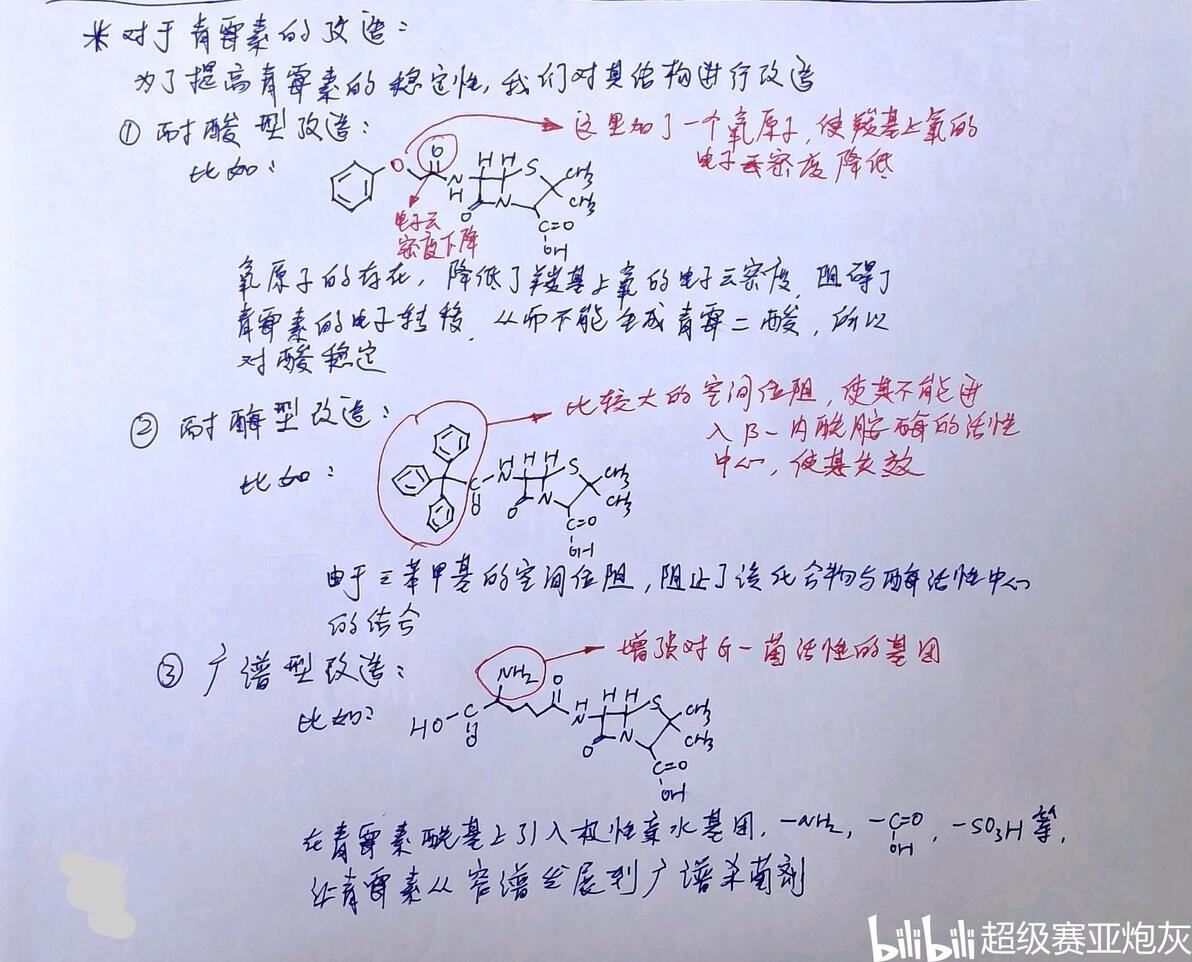 *对于青霉素的改造:
为了提高青霉素的稳定性,我们对其结构进行改造
① 耐酸型改造:
这里加了一个氧原子,使羰基上氧的
电子云密度降低
比如:
O O H H S CH3
CH3
N
H
O N
C=O
OH
电子云
密度下降
氧原子的存在,降低了羰基上氧的电子云密度,阻碍了
青霉素的电子转移,从而不能生成青霉二酸,所以
对酸稳定
② 耐酶型改造:
比较大的空间位阻,使其不能进
入β-内酰胺酶的活性
中心,使其失效
比如:
C
O
H
N
H H S CH3
CH3
O N
C=O
OH
由于三苯甲基的空间位阻,阻止了该化合物与酶活性中心
的结合
③ 广谱型改造:
增强对G-菌活性的基团
比如:
NH2
HO-C
O
O
H
N
H H S CH3
CH3
O N
C=O
OH
在青霉素酰基上引入极性亲水基团,-NH2,-C=O,-SO3H等,
OH
让青霉素从窄谱发展到广谱杀菌剂
bilibili 超级赛亚炮灰